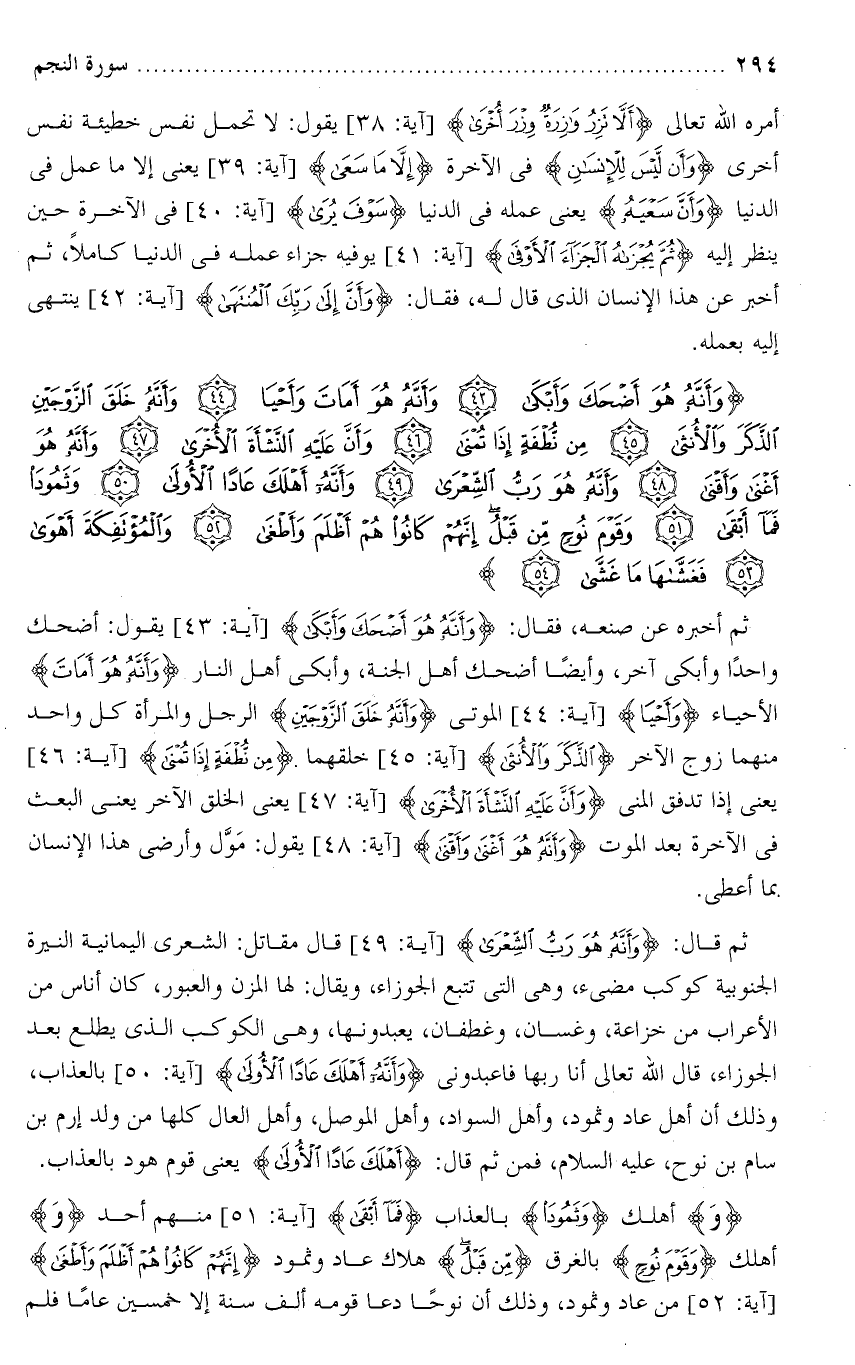 ٢٩٤ ........................................................................ سورة النجم
أمره الله تعالى ﴿أَلَّا تَزِرُ وَازِرَةٌ وِزْرَ أُخْرَىٰ﴾ [آية: ٣٨] يقول: لا تحمل نفس خطيئة نفس
أخرى ﴿وَأَن لَّيْسَ لِلْإِنسَـٰنِ﴾ فى الآخرة ﴿إِلَّا مَا سَعَىٰ﴾ [آية: ٣٩] يعنى إلا ما عمل فى
الدنيا ﴿وَأَنَّ سَعْيَهُۥ﴾ يعنى عمله فى الدنيا ﴿سَوْفَ يُرَىٰ﴾ [آية: ٤٠] فى الآخرة حين
ينظر إليه ﴿ثُمَّ يُجْزَىٰهُ ٱلْجَزَآءَ ٱلْأَوْفَىٰ﴾ [آية: ٤١] يوفيه جزاء عمله فى الدنيا كاملاً، ثم
أخبر عن هذا الإنسان الذى قال له، فقال: ﴿وَأَنَّ إِلَىٰ رَبِّكَ ٱلْمُنتَهَىٰ﴾ [آية: ٤٢] ينتهى
إليه بعمله.
﴿وَأَنَّهُۥ هُوَ أَضْحَكَ وَأَبْكَىٰ ٤٣ وَأَنَّهُۥ هُوَ أَمَاتَ وَأَحْيَا ٤٤ وَأَنَّهُۥ خَلَقَ ٱلزَّوْجَيْنِ
ٱلذَّكَرَ وَٱلْأُنثَىٰ ٤٥ مِن نُّطْفَةٍ إِذَا تُمْنَىٰ ٤٦ وَأَنَّ عَلَيْهِ ٱلنَّشْأَةَ ٱلْأُخْرَىٰ ٤٧ وَأَنَّهُۥ هُوَ
أَغْنَىٰ وَأَقْنَىٰ ٤٨ وَأَنَّهُۥ هُوَ رَبُّ ٱلشِّعْرَىٰ ٤٩ وَأَنَّهُۥٓ أَهْلَكَ عَادًا ٱلْأُولَىٰ ٥٠ وَثَمُودَا۟
فَمَآ أَبْقَىٰ ٥١ وَقَوْمَ نُوحٍ مِّن قَبْلُ ۖ إِنَّهُمْ كَانُوا۟ هُمْ أَظْلَمَ وَأَطْغَىٰ ٥٢ وَٱلْمُؤْتَفِكَةَ أَهْوَىٰ
٥٣ فَغَشَّىٰهَا مَا غَشَّىٰ ٥٤ ﴾
ثم أخبره عن صنعه، فقال: ﴿وَأَنَّهُۥ هُوَ أَضْحَكَ وَأَبْكَىٰ﴾ [آية: ٤٣] يقول: أضحك
واحدًا وأبكى آخر، وأيضًا أضحك أهل الجنة، وأبكى أهل النار ﴿وَأَنَّهُۥ هُوَ أَمَاتَ﴾
الأحياء ﴿وَأَحْيَا﴾ [آية: ٤٤] الموتى ﴿وَأَنَّهُۥ خَلَقَ ٱلزَّوْجَيْنِ﴾ الرجل والمرأة كل واحد
منهما زوج الآخر ﴿ٱلذَّكَرَ وَٱلْأُنثَىٰ﴾ [آية: ٤٥] خلقهما ﴿مِن نُّطْفَةٍ إِذَا تُمْنَىٰ﴾ [آية: ٤٦]
يعنى إذا تدفق المنى ﴿وَأَنَّ عَلَيْهِ ٱلنَّشْأَةَ ٱلْأُخْرَىٰ﴾ [آية: ٤٧] يعنى الخلق الآخر يعنى البعث
فى الآخرة بعد الموت ﴿وَأَنَّهُۥ هُوَ أَغْنَىٰ وَأَقْنَىٰ﴾ [آية: ٤٨] يقول: مَوَّل وأرضى هذا الإنسان
بما أعطى.
ثم قال: ﴿وَأَنَّهُۥ هُوَ رَبُّ ٱلشِّعْرَىٰ﴾ [آية: ٤٩] قال مقاتل: الشعرى اليمانية النيرة
الجنوبية كوكب مضىء، وهى التى تتبع الجوزاء، ويقال: لها المزن والعبور، كان أناس من
الأعراب من خزاعة، وغسان، وغطفان، يعبدونها، وهى الكوكب الذى يطلع بعد
الجوزاء، قال الله تعالى أنا ربها فاعبدونى ﴿وَأَنَّهُۥٓ أَهْلَكَ عَادًا ٱلْأُولَىٰ﴾ [آية: ٥٠] بالعذاب،
وذلك أن أهل عاد وثمود، وأهل السواد، وأهل الموصل، وأهل العال كلها من ولد إرم بن
سام بن نوح، عليه السلام، فمن ثم قال: ﴿أَهْلَكَ عَادًا ٱلْأُولَىٰ﴾ يعنى قوم هود بالعذاب.
﴿وَ﴾ أهلك ﴿وَثَمُودَا۟﴾ بالعذاب ﴿فَمَآ أَبْقَىٰ﴾ [آية: ٥١] منهم أحد ﴿وَ﴾
أهلك ﴿وَقَوْمَ نُوحٍ﴾ بالغرق ﴿مِّن قَبْلُ ۖ﴾ هلاك عاد وثمود ﴿إِنَّهُمْ كَانُوا۟ هُمْ أَظْلَمَ وَأَطْغَىٰ﴾
[آية: ٥٢] من عاد وثمود، وذلك أن نوحًا دعا قومه ألف سنة إلا خمسين عامًا فلم